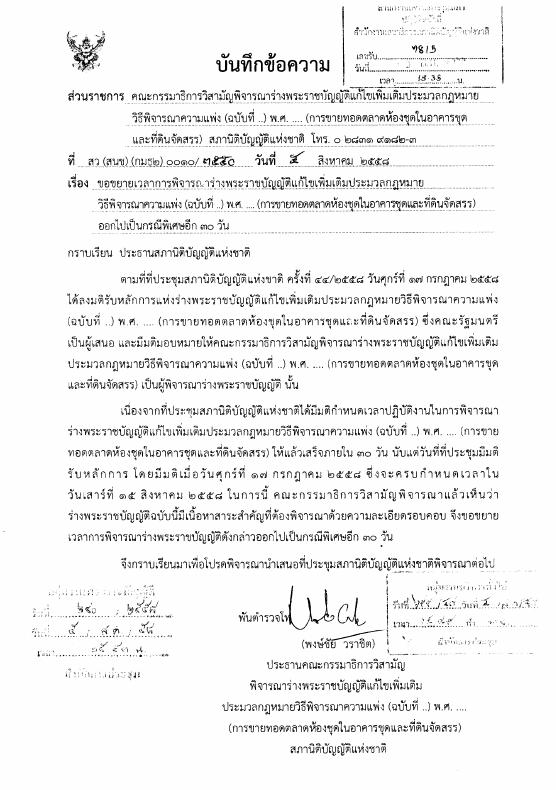 สำนักงานเลขาธิการสภานิติบัญญัติแห่งชาติ
เลขรับ
วันที่
เวลา น.
บันทึกข้อความ
ส่วนราชการ คณะกรรมาธิการวิสามัญพิจารณาร่างพระราชบัญญัติแก้ไขเพิ่มเติมประมวลกฎหมาย
วิธีพิจารณาความแพ่ง (ฉบับที่ ..) พ.ศ. .... (การขายทอดตลาดห้องชุดในอาคารชุด
และที่ดินจัดสรร) สภานิติบัญญัติแห่งชาติ โทร. ๐ ๒๘๓๑ ๙๑๘๒-๓
ที่ สว (สนช) (กมธ๒) ๐๐๑๐/ ๓๕๕๐ วันที่ ๕ สิงหาคม ๒๕๕๘
เรื่อง ขอขยายเวลาการพิจารณาร่างพระราชบัญญัติแก้ไขเพิ่มเติมประมวลกฎหมาย
วิธีพิจารณาความแพ่ง (ฉบับที่ ..) พ.ศ. .... (การขายทอดตลาดห้องชุดในอาคารชุดและที่ดินจัดสรร)
ออกไปเป็นกรณีพิเศษอีก ๓๐ วัน
กราบเรียน ประธานสภานิติบัญญัติแห่งชาติ
ตามที่ที่ประชุมสภานิติบัญญัติแห่งชาติ ครั้งที่ ๔๔/๒๕๕๘ วันศุกร์ที่ ๑๗ กรกฎาคม ๒๕๕๘
ได้ลงมติรับหลักการแห่งร่างพระราชบัญญัติแก้ไขเพิ่มเติมประมวลกฎหมายวิธีพิจารณาความแพ่ง
(ฉบับที่ ..) พ.ศ. .... (การขายทอดตลาดห้องชุดในอาคารชุดและที่ดินจัดสรร) ซึ่งคณะรัฐมนตรี
เป็นผู้เสนอ และมีมติมอบหมายให้คณะกรรมาธิการวิสามัญพิจารณาร่างพระราชบัญญัติแก้ไขเพิ่มเติม
ประมวลกฎหมายวิธีพิจารณาความแพ่ง (ฉบับที่ ..) พ.ศ. .... (การขายทอดตลาดห้องชุดในอาคารชุด
และที่ดินจัดสรร) เป็นผู้พิจารณาร่างพระราชบัญญัติ นั้น
เนื่องจากที่ประชุมสภานิติบัญญัติแห่งชาติได้มีมติกำหนดเวลาปฏิบัติงานในการพิจารณา
ร่างพระราชบัญญัติแก้ไขเพิ่มเติมประมวลกฎหมายวิธีพิจารณาความแพ่ง (ฉบับที่ ..) พ.ศ. .... (การขาย
ทอดตลาดห้องชุดในอาคารชุดและที่ดินจัดสรร) ให้แล้วเสร็จภายใน ๓๐ วัน นับแต่วันที่ที่ประชุมมีมติ
รับหลักการ โดยมีมติเมื่อวันศุกร์ที่ ๑๗ กรกฎาคม ๒๕๕๘ ซึ่งจะครบกำหนดเวลาใน
วันเสาร์ที่ ๑๕ สิงหาคม ๒๕๕๘ ในการนี้ คณะกรรมาธิการวิสามัญพิจารณาแล้วเห็นว่า
ร่างพระราชบัญญัติฉบับนี้มีเนื้อหาสาระสำคัญที่ต้องพิจารณาด้วยความละเอียดรอบคอบ จึงขอขยาย
เวลาการพิจารณาร่างพระราชบัญญัติดังกล่าวออกไปเป็นกรณีพิเศษอีก ๓๐ วัน
จึงกราบเรียนมาเพื่อโปรดพิจารณานำเสนอที่ประชุมสภานิติบัญญัติแห่งชาติพิจารณาต่อไป
พันตำรวจโท
(พงษ์ชัย วราชิต)
ประธานคณะกรรมาธิการวิสามัญ
พิจารณาร่างพระราชบัญญัติแก้ไขเพิ่มเติม
ประมวลกฎหมายวิธีพิจารณาความแพ่ง (ฉบับที่ ..) พ.ศ. ....
(การขายทอดตลาดห้องชุดในอาคารชุดและที่ดินจัดสรร)
สภานิติบัญญัติแห่งชาติ